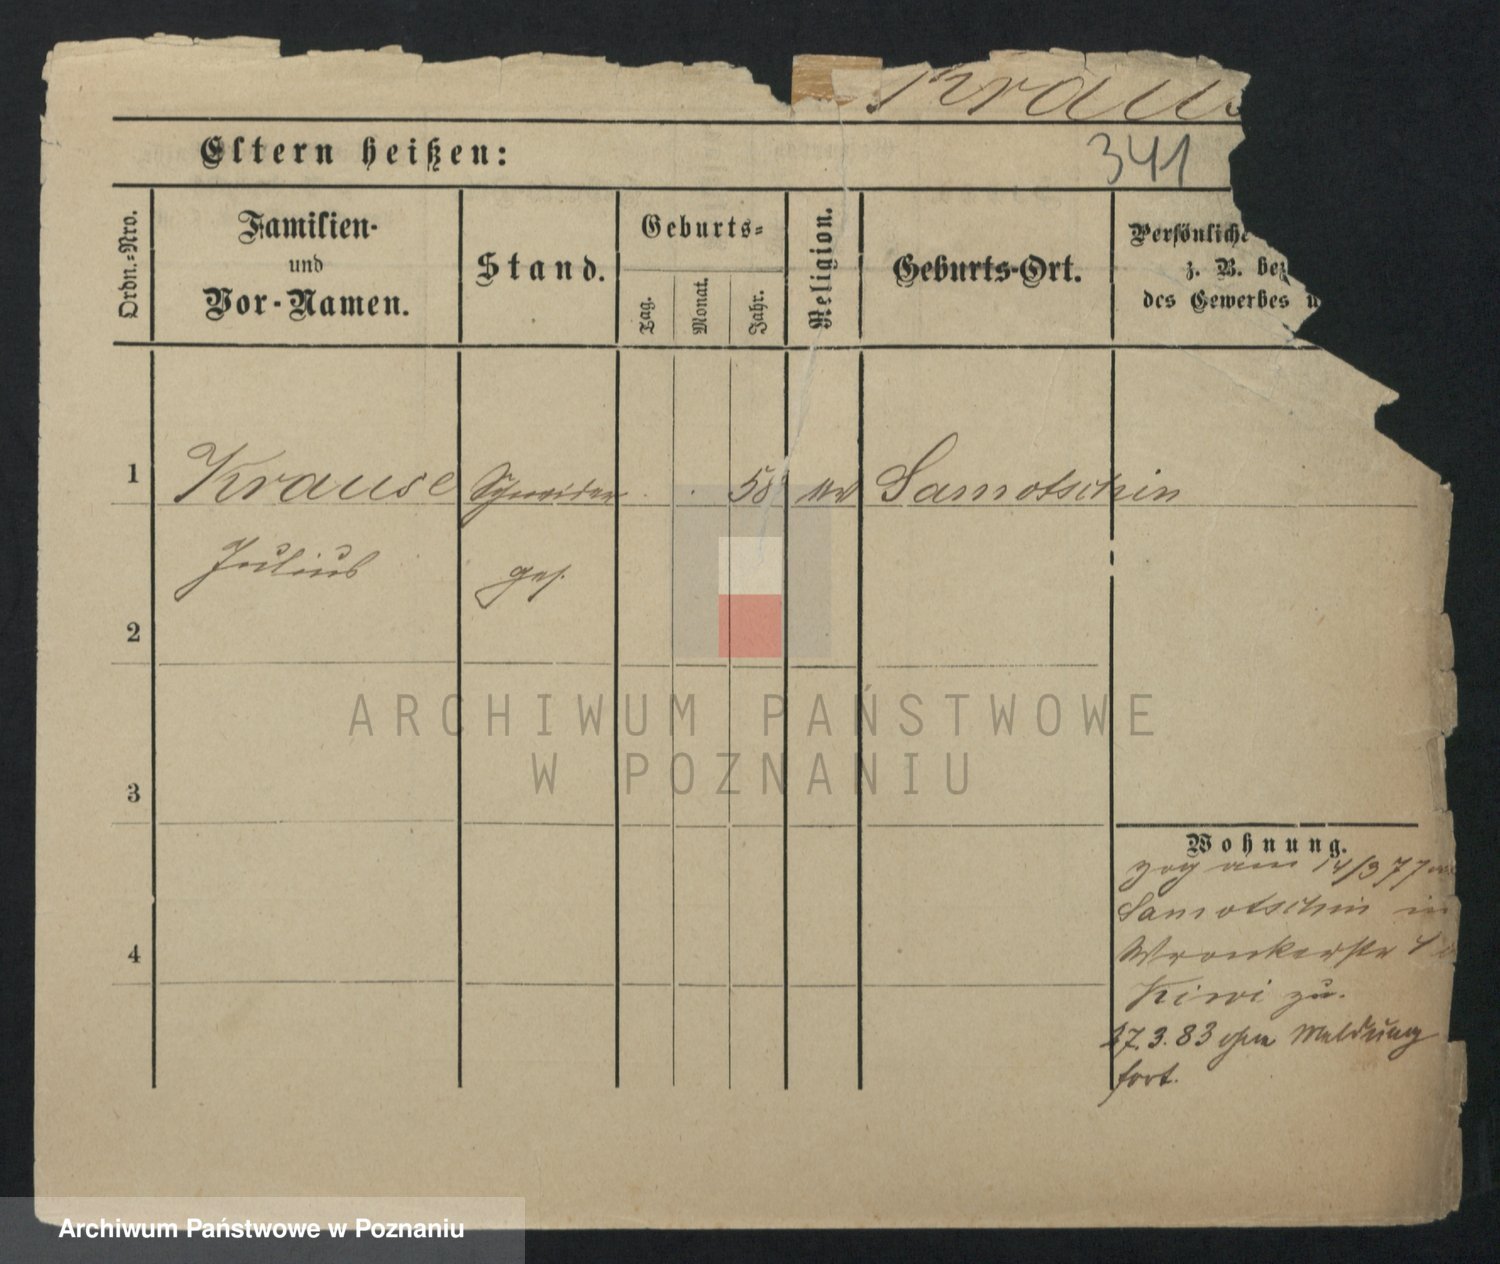 Kraus
Eltern heißen:
341
Ordn.-Nro.
Familien-
und
Vor-Namen.
Stand.
Geburts-
Tag.
Monat.
Jahr.
Religion.
Geburts-Ort.
Persönliche
z. B. bez
des Gewerbes u
1
Krause
Schneider
58
Samotschin
Julius
ges.
2
ARCHIWUM PAŃSTWOWE
W POZNANIU
3
Wohnung.
zog am 14/3 77
Samotschin in
Wronkerstr 4
Kiwi zu.
4
27.3.83 ohne Meldung
fort.
Archiwum Państwowe w Poznaniu